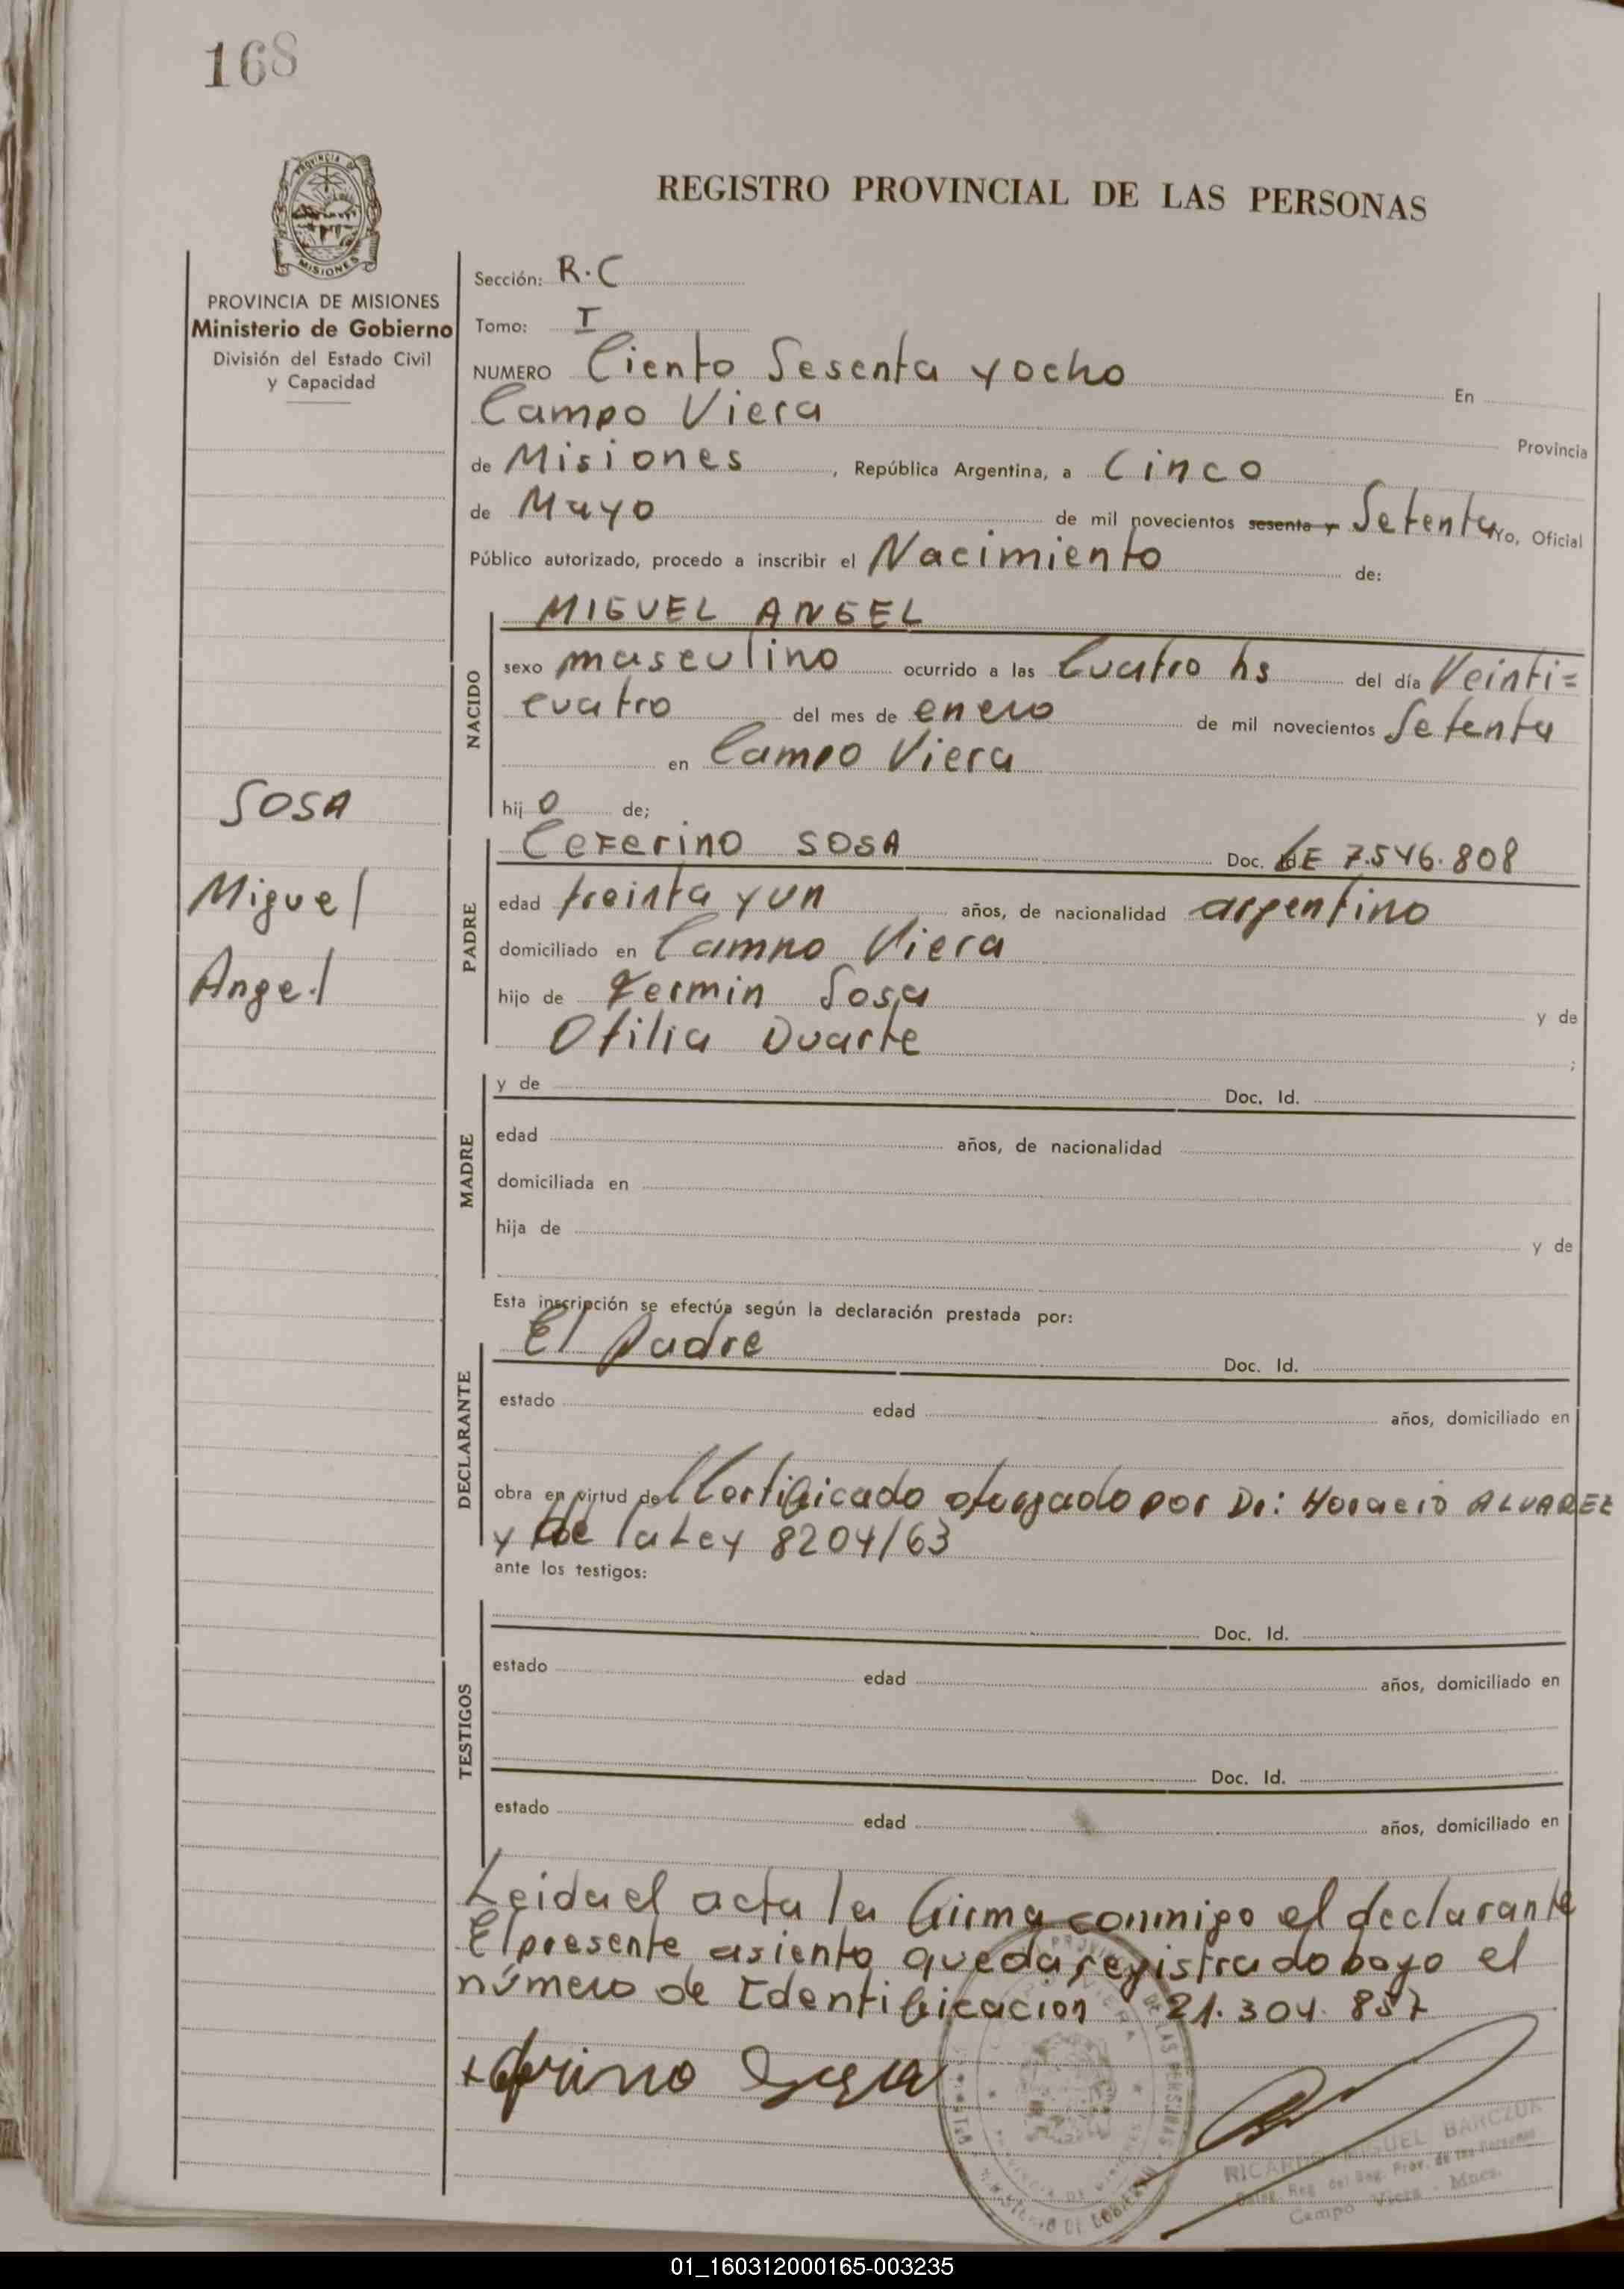 168
PROVINCIA DE
MISIONES
REGISTRO PROVINCIAL DE LAS PERSONAS
PROVINCIA DE MISIONES
Ministerio de Gobierno
División del Estado Civil
y Capacidad
SOSA
Miguel
Angel
Sección: R.C
Tomo: I
NUMERO Ciento Sesenta y ocho En
Campo Viera Provincia
de Misiones, República Argentina, a Cinco
de Mayo de mil novecientos sesenta y Setenta Yo, Oficial
Público autorizado, procedo a inscribir el Nacimiento de:
NACIDO
MIGUEL ANGEL
sexo masculino ocurrido a las Cuatro hs del día Veinti=
cuatro del mes de enero de mil novecientos Setenta
en Campo Viera
hijo de;
PADRE
Ceferino SOSA Doc. LE 7.546.808
edad treinta y un años, de nacionalidad argentino
domiciliado en Campo Viera
hijo de Fermin Sosa y de
Otilia Duarte ;
MADRE
y de Doc. Id.
edad años, de nacionalidad
domiciliada en
hija de y de
Esta inscripción se efectúa según la declaración prestada por:
DECLARANTE
El padre Doc. Id.
estado edad años, domiciliado en
obra en virtud del Certificado otorgado por Dr: Horacio ALVAREZ
y de la Ley 8204/63
ante los testigos:
TESTIGOS
Doc. Id.
estado edad años, domiciliado en
Doc. Id.
estado edad años, domiciliado en
Leida el acta la firma conmigo el declarante
El presente asiento queda registrado bajo el
número de Identificacion 21.304.857
RICARDO MIGUEL BARCZUK
Deleg. Reg. del Reg. Prov. de las Personas
Campo Viera - Mnes.
01_160312000165-003235